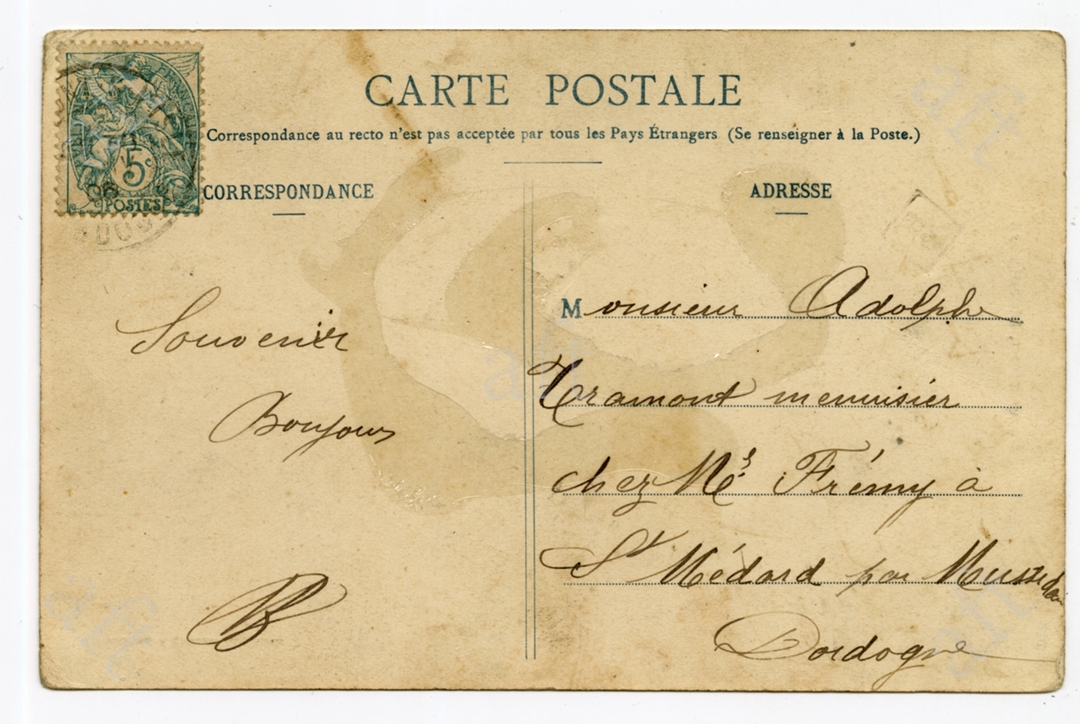 CARTE POSTALE
Correspondance au recto n'est pas acceptée par tous les Pays Étrangers (Se renseigner à la Poste.)
CORRESPONDANCE
ADRESSE
5c
POSTES
06
Souvenir
Bonjour
Monsieur Adolphe
Tramont menuisier
chez Mr Frémy à
St Médard par Mussidan
Dordogne
aft
aft
aft
aft